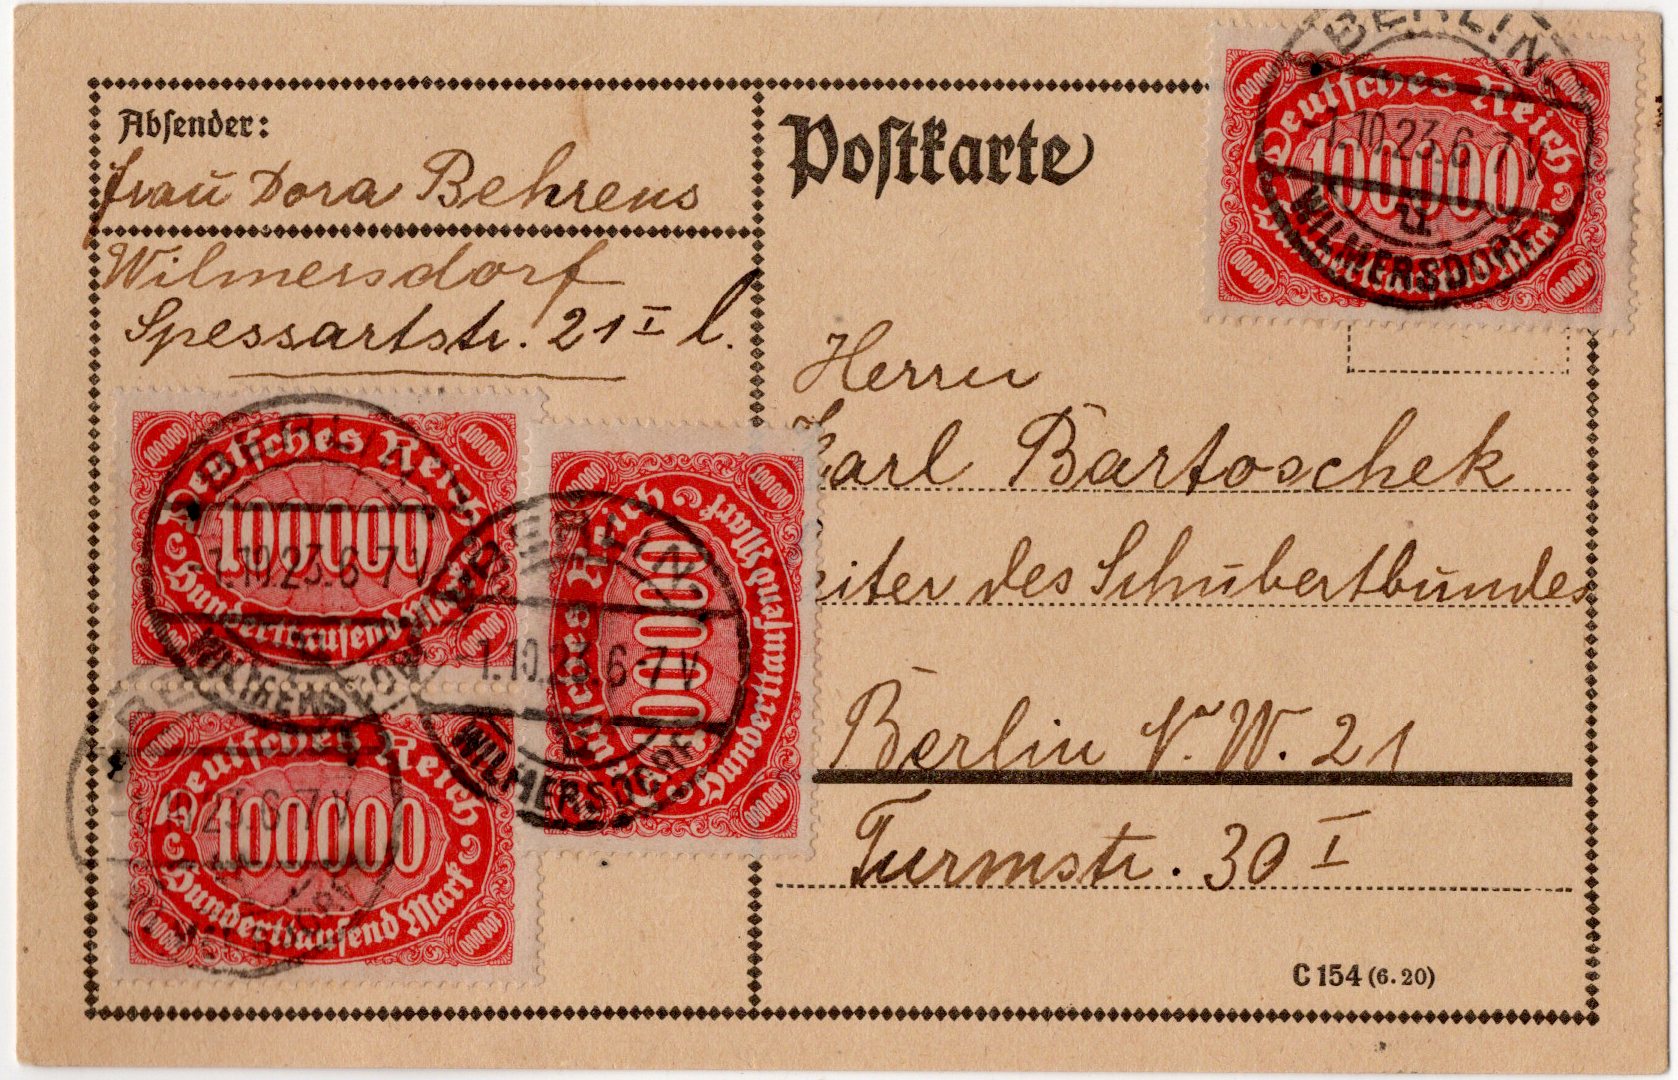 Absender:
Frau Dora Behrens
Wilmersdorf
Spessartstr. 21 I l.
Postkarte
BERLIN
1.10.23.6-7V
WILMERSDORF
Deutsches Reich
100000
Hunderttausend Mark
Herrn
Karl Bartoschek
eiter des Schubertbundes
Berlin N.W. 21
Turmstr. 30 I
BERLIN
1.10.23.6-7V
WILMERSDORF
Deutsches Reich
100000
Hunderttausend Mark
BERLIN
1.10.23.6-7V
WILMERSDORF
Deutsches Reich
100000
Hunderttausend Mark
Deutsches Reich
100000
Hunderttausend Mark
C 154 (6.20)